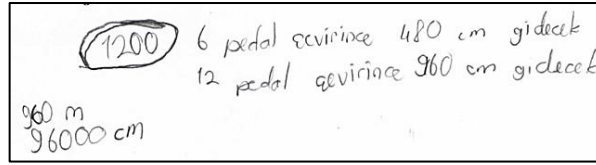 1200
6 pedal çevirince 480 cm gidecek
12 pedal çevirince 960 cm gidecek
960 m
96000 cm